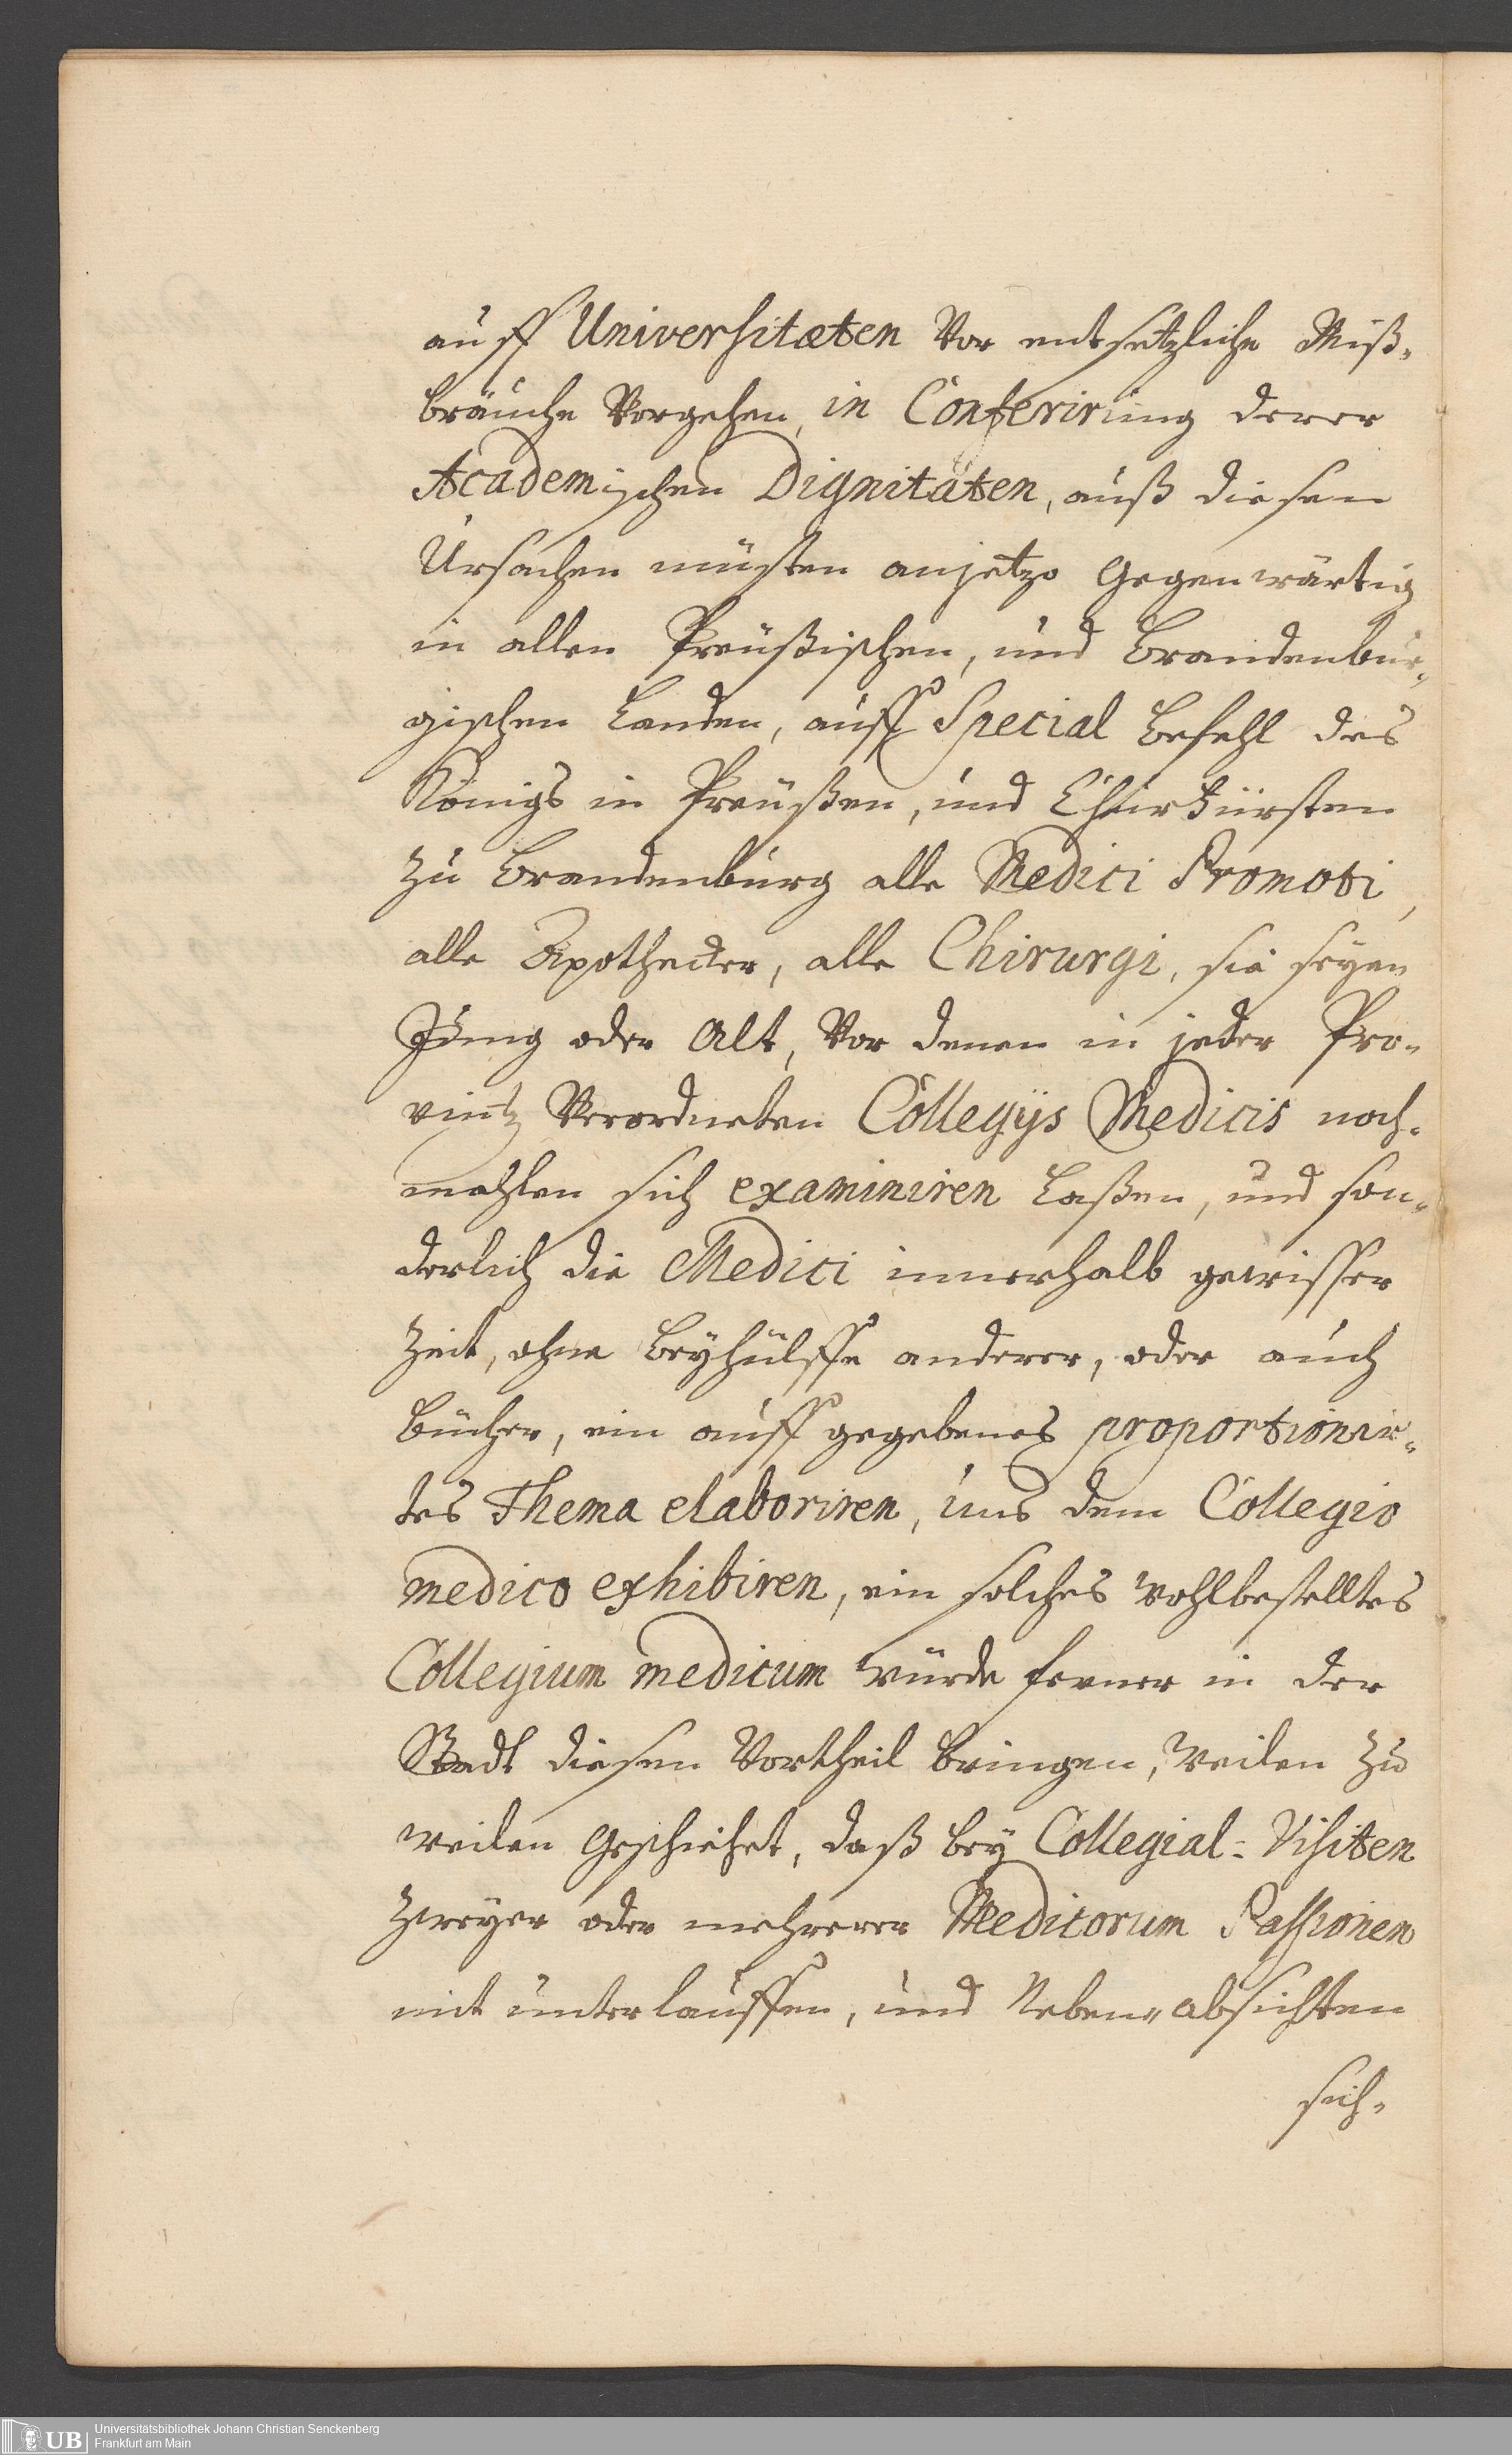 auff Universitæten vor entsetzliche Miß-
bräuche Vorgehen, in Conferirung derer
Academischen Dignitäten, auß diesen
Ursachen müsten anjetzo Gegenwärtig
in allen Preüßischen, und Brandenbur-
gischen Landen, auff Special Befehl des
Königs in Preüßen, und Churfürsten
zu Brandenburg alle Medici Promoti,
alle Apothecker, alle Chirurgi, sie seyen
Jung oder Alt, Vor denen in jeder Pro-
vintz Verordneten Collegijs Medicis noch-
mahlen sich examiniren Laßen, und son-
derlich die Medici innerhalb gewisser
Zeit, ohne Beyhülffe anderer, oder auch
Bücher, ein auff gegebenes proportionir-
tes Thema elaboriren, uns dem Collegio
medico exhibiren, ein solches wohlbestelltes
Collegium medicum würde ferner in der
Stadt diesen Vortheil bringen, weilen zu
weilen Geschiehet, daß bey Collegial-Visiten
Zweyer oder mehrerer Medicorum Passionen
mit unterlauffen, und Neben-absichten
sich-
Universitätsbibliothek Johann Christian Senckenberg
UB Frankfurt am Main